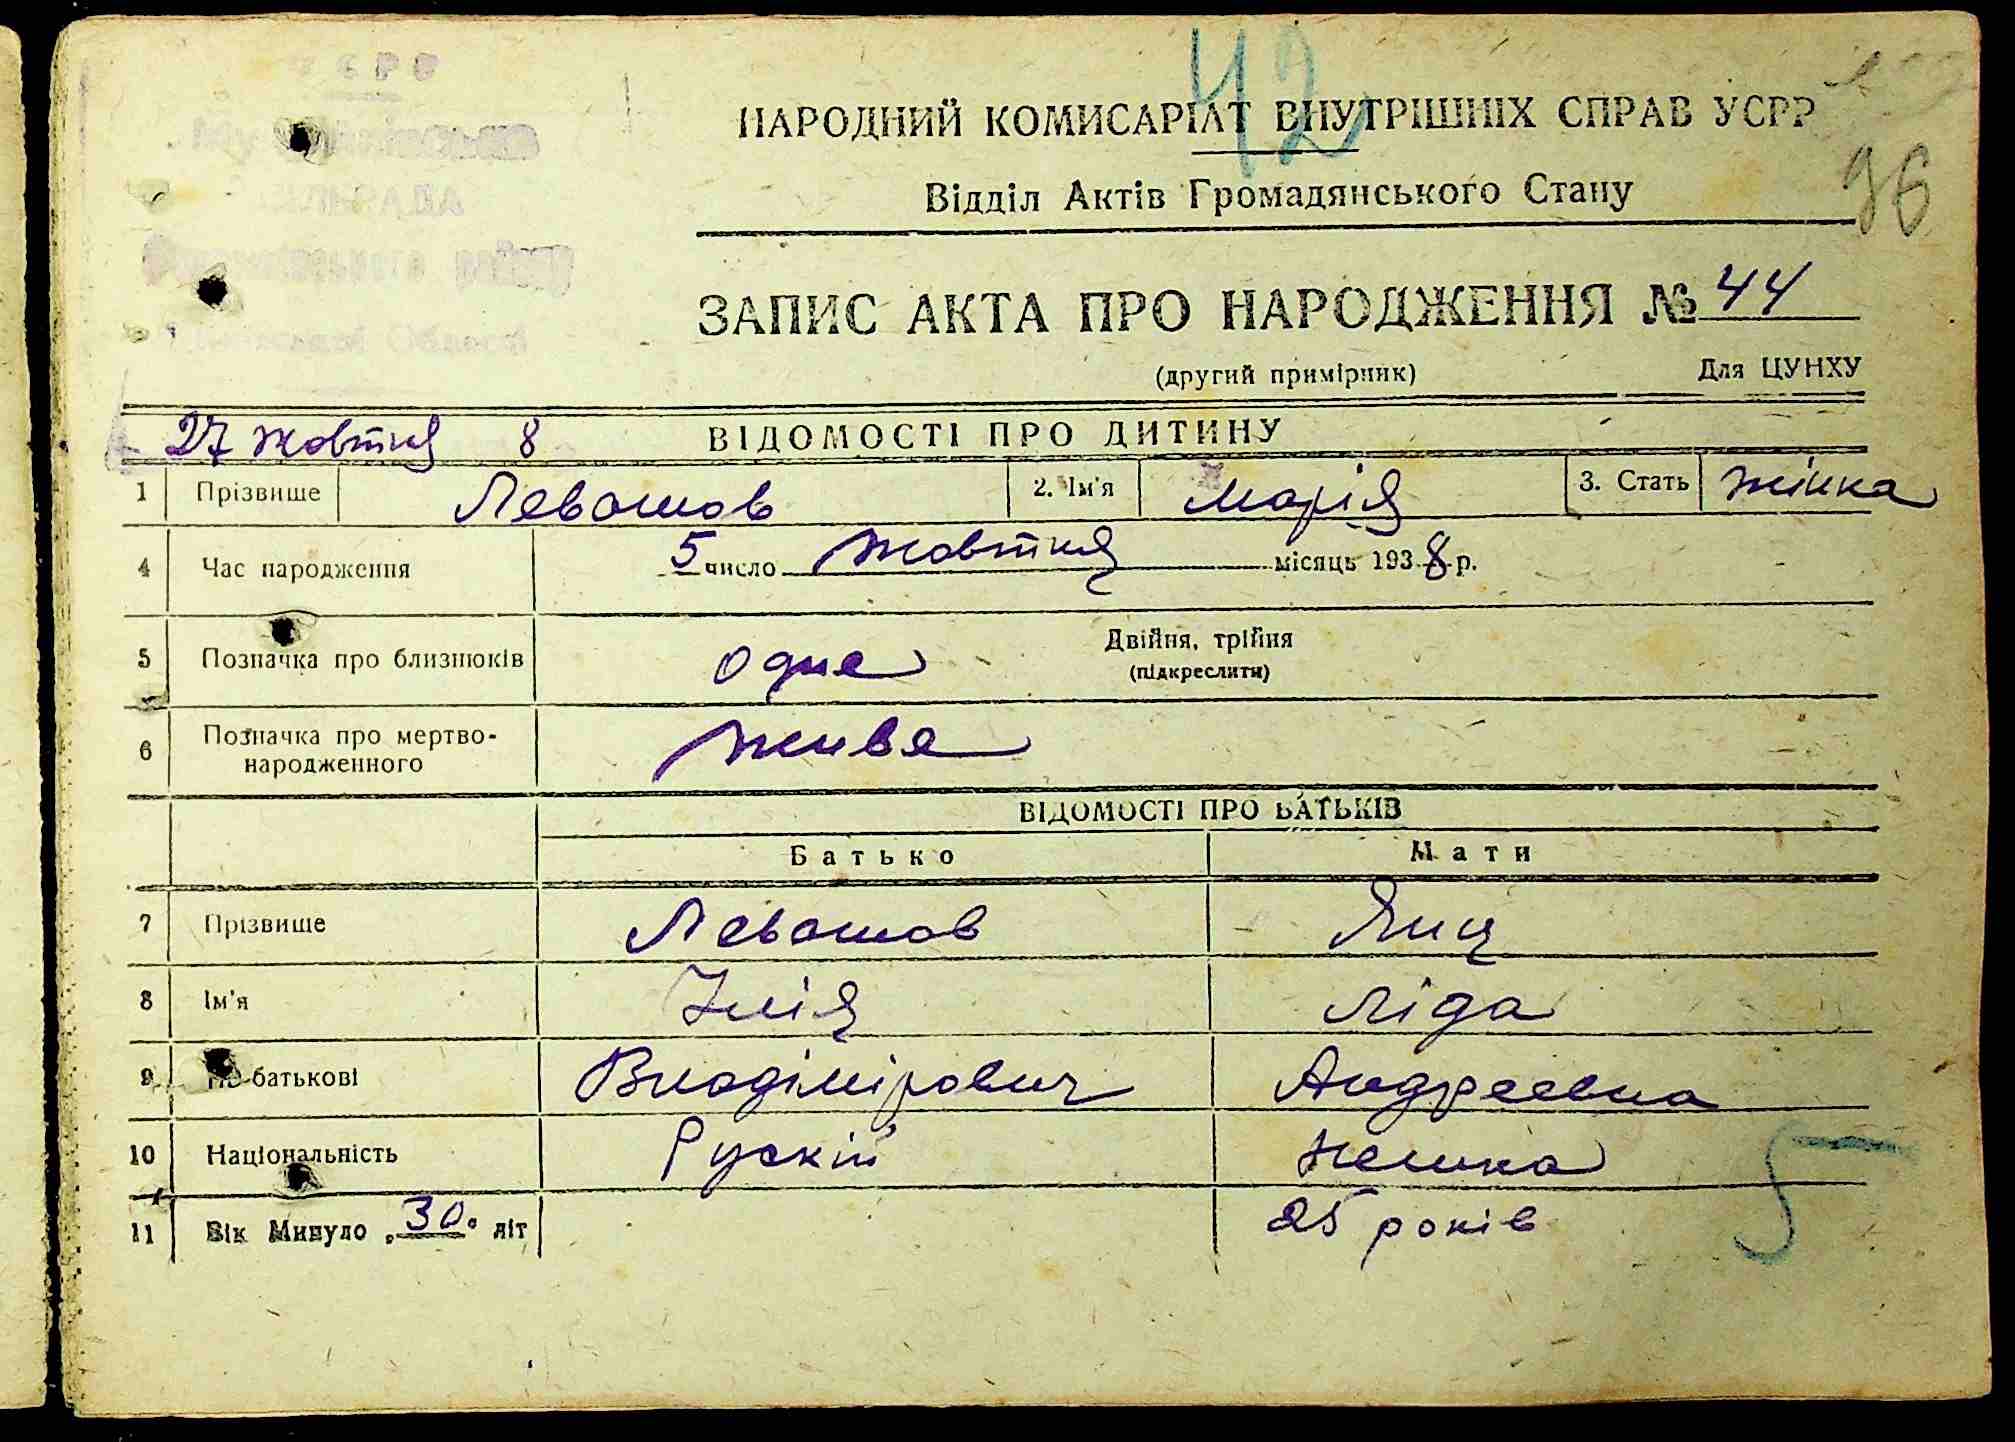 42
НАРОДНИЙ КОМИСАРІАТ ВНУТРІШНІХ СПРАВ УСРР
96
Відділ Актів Громадянського Стану
СІЛЬРАДА
району
Області
ЗАПИС АКТА ПРО НАРОДЖЕННЯ № 44
(другий примірник) Для ЦУНХУ
27 жовтня 8 ВІДОМОСТІ ПРО ДИТИНУ
1 Прізвище Левашов 2. Ім'я Марія 3. Стать жінка
4 Час народження 5 число жовтня місяць 1938 р.
5 Позначка про близнюків одне Двійня, трійня
(підкреслити)
6 Позначка про мертво-
народженного живе
ВІДОМОСТІ ПРО БАТЬКІВ
Батько Мати
7 Прізвище Левашов Янц
8 Ім'я Ілія Ліда
9 По-батькові Владімірович Андреевна
10 Національність Рускій Немка
11 Вік Минуло „30" літ 25 років
5